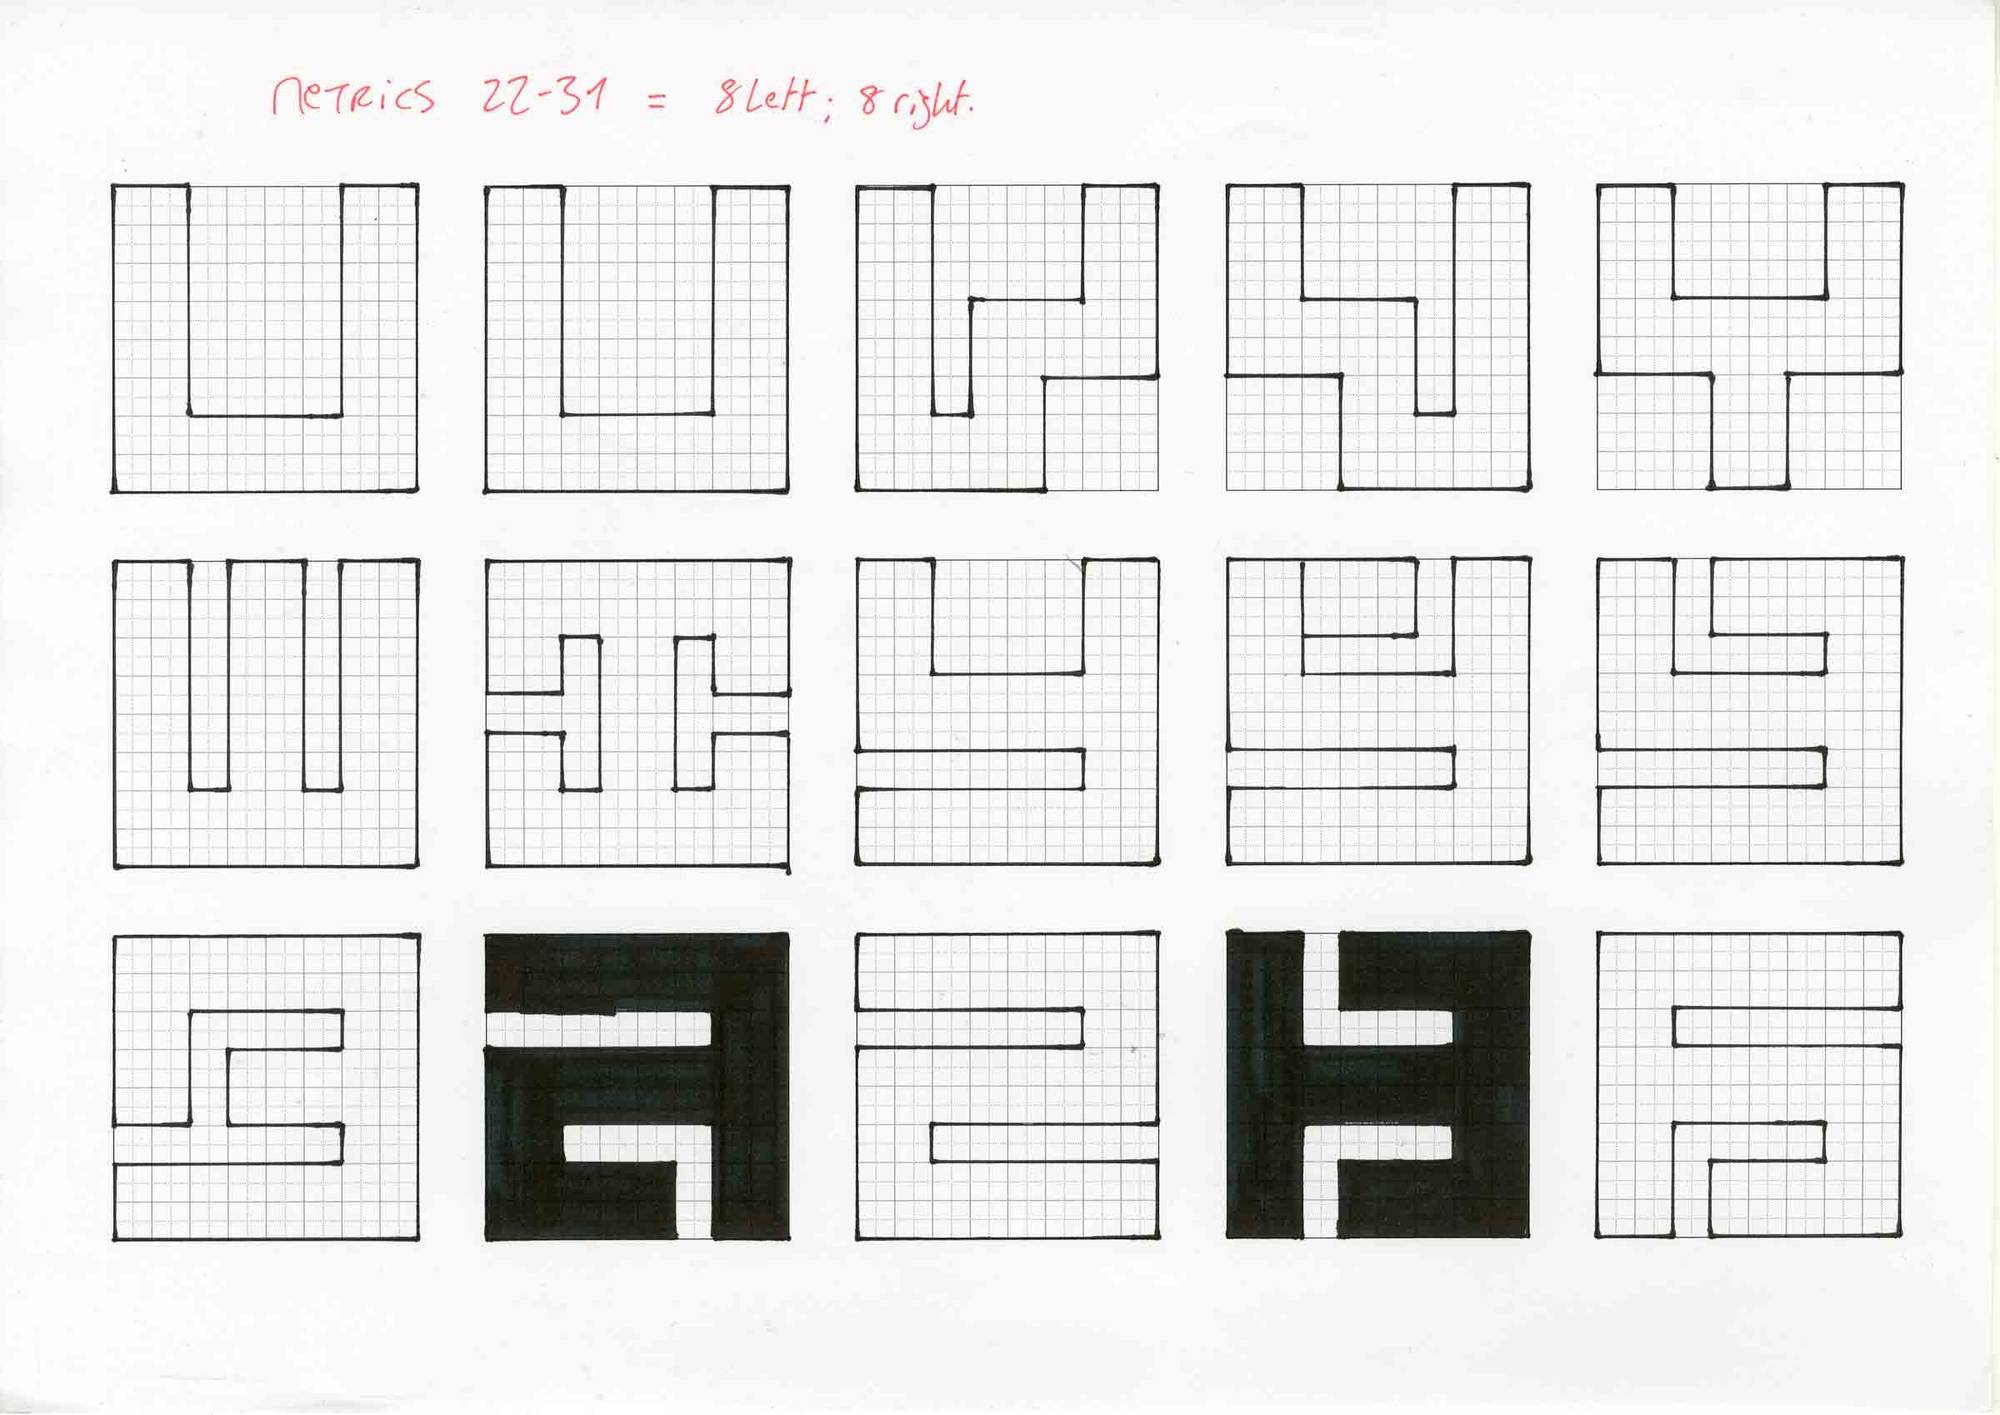 METRICS 22-31 = 8 left; 8 right.